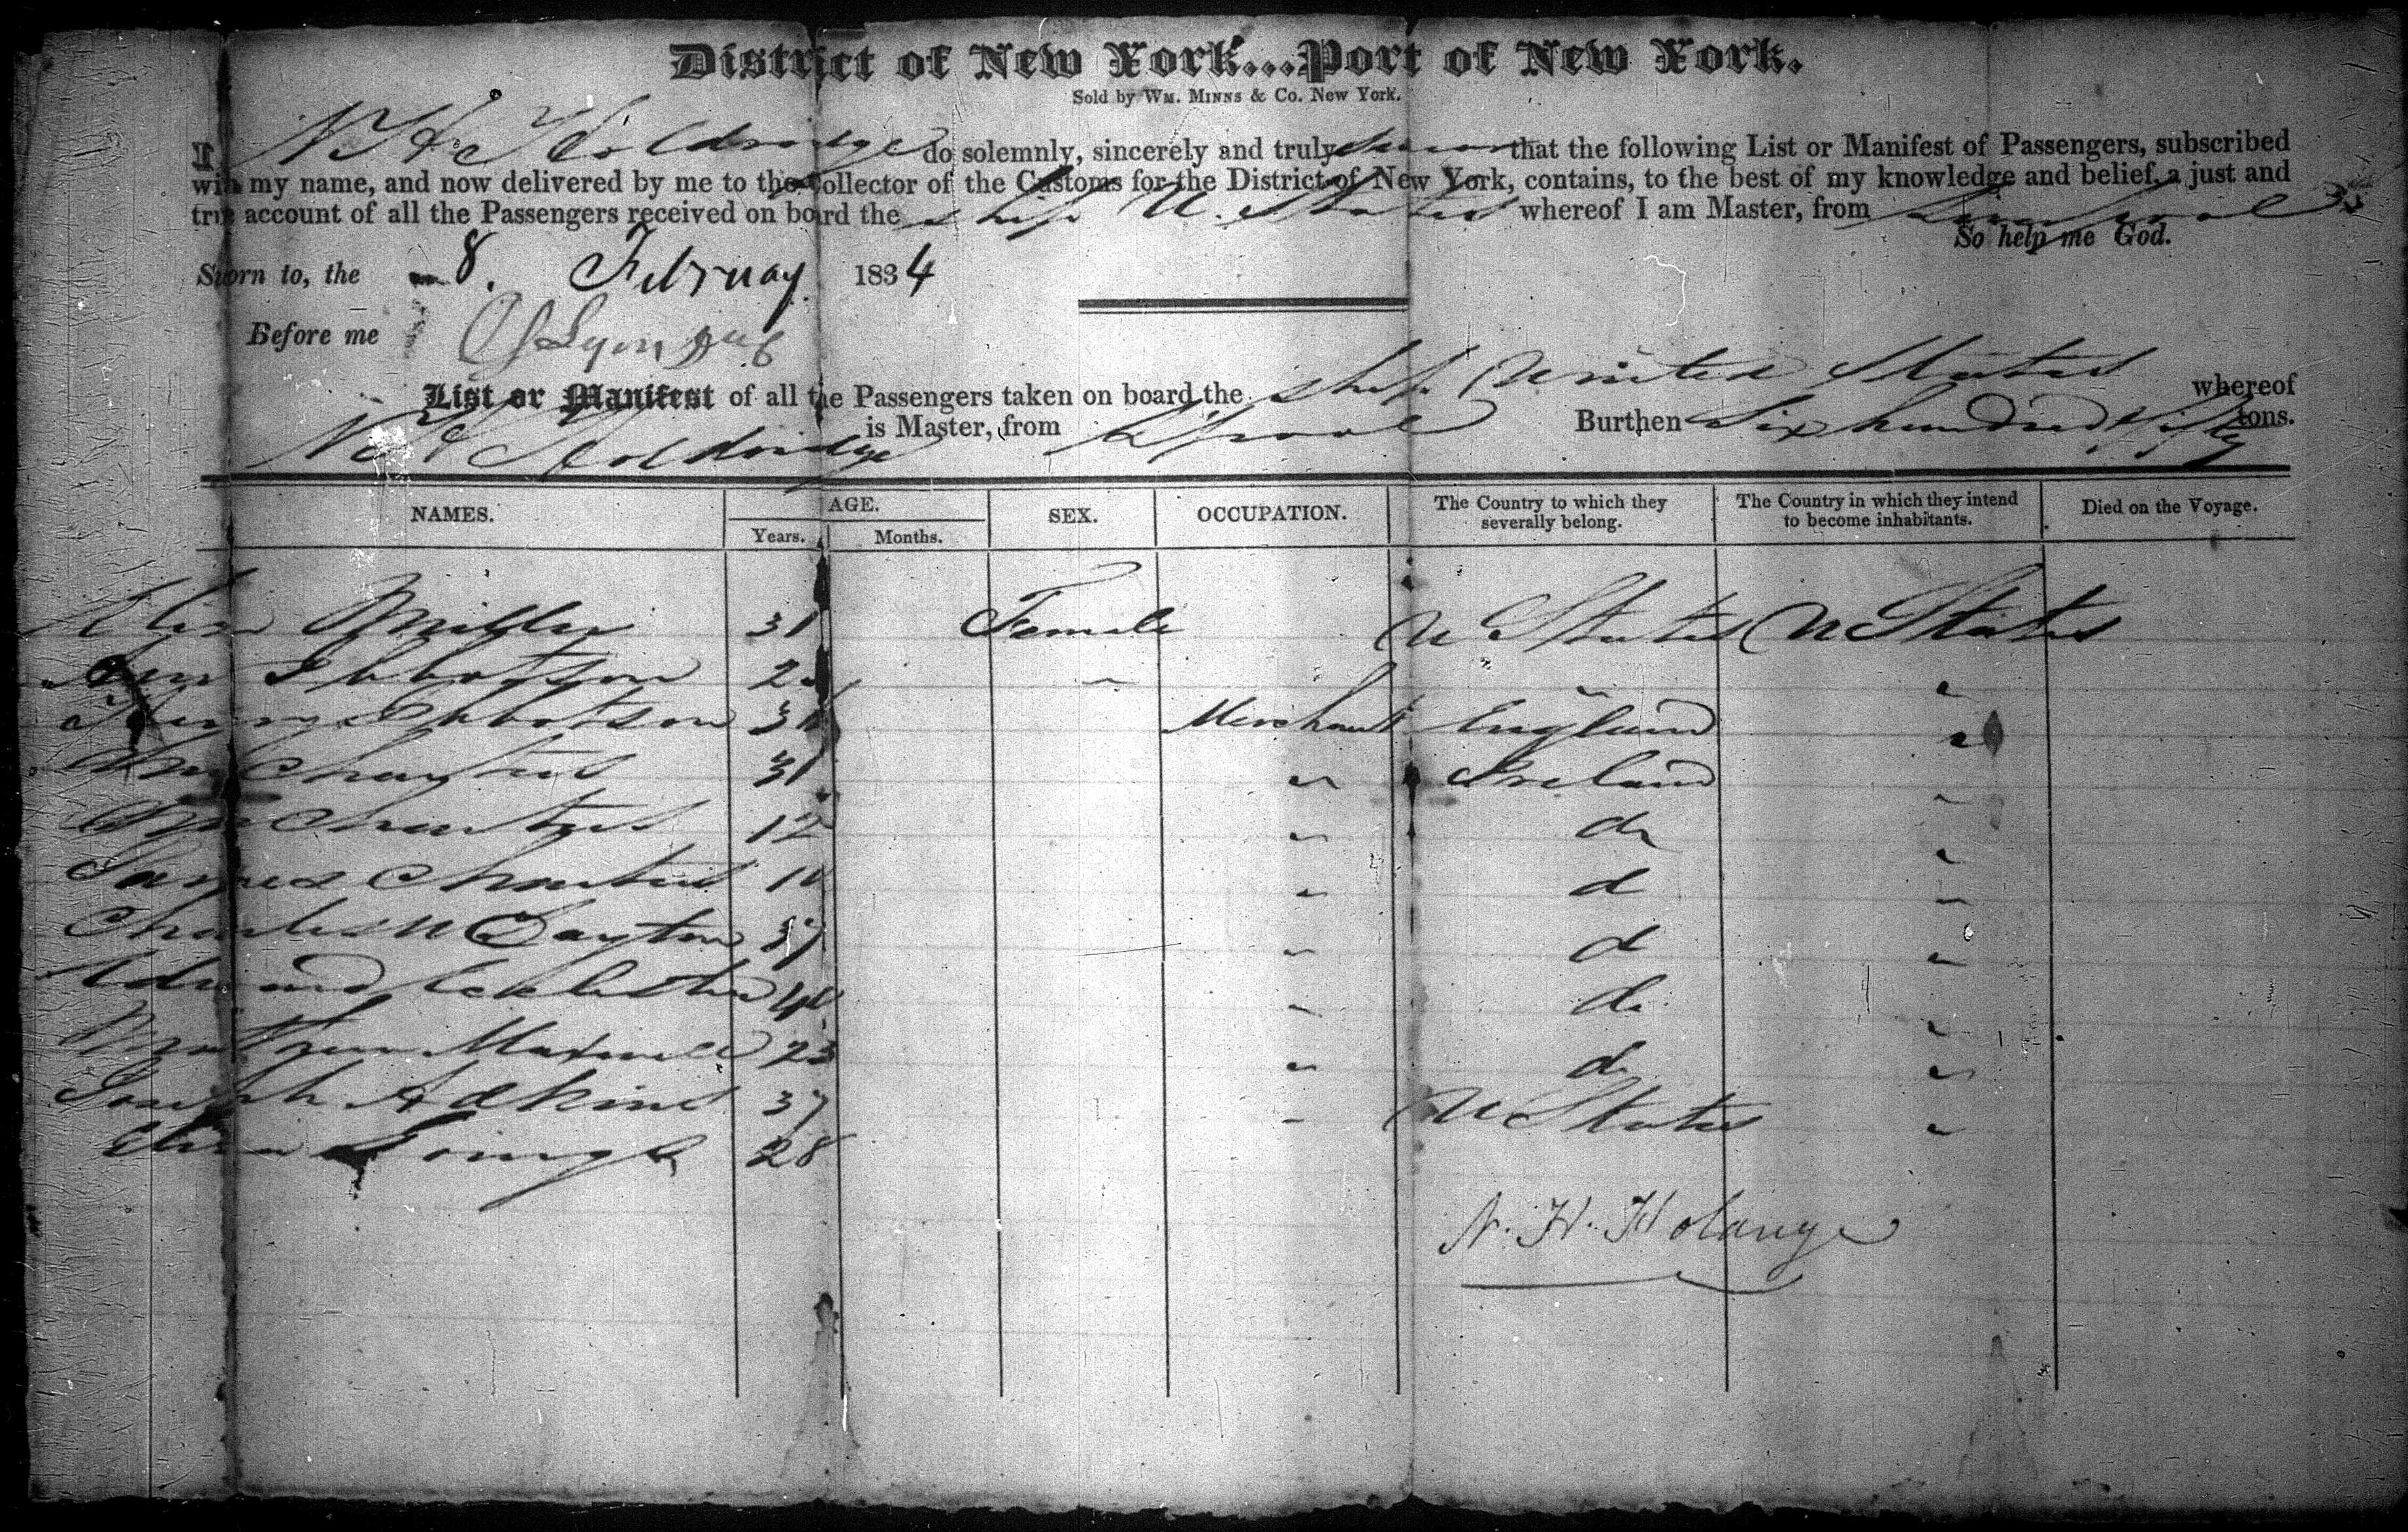 District of New York...Port of New York.
Sold by Wm. Minns & Co. New York.
I N H Holdridge do solemnly, sincerely and truly swear that the following List or Manifest of Passengers, subscribed
with my name, and now delivered by me to the Collector of the Customs for the District of New York, contains, to the best of my knowledge and belief, a just and
true account of all the Passengers received on board the ship U. States whereof I am Master, from Liverpool
So help me God.
Sworn to, the 8. February 1834
Before me
List or Manifest of all the Passengers taken on board the ship United States whereof
N H Holdridge is Master, from L'pool Burthen Six hundred & fifty tons.
NAMES. AGE. SEX. OCCUPATION. The Country to which they severally belong. The Country in which they intend to become inhabitants. Died on the Voyage.
Years. Months.
Miller 31 Female U States U States
Ann Ibbotson "
Henry Ibbotson Merchant England "
31 " Ireland "
12 " do "
James " d "
Charles W Dayton 37 " d "
Edmund " do "
Matthew Maxwell 23 " do "
Joseph Adkins 37 " U States "
Eliza 28
N. H. Holdridge